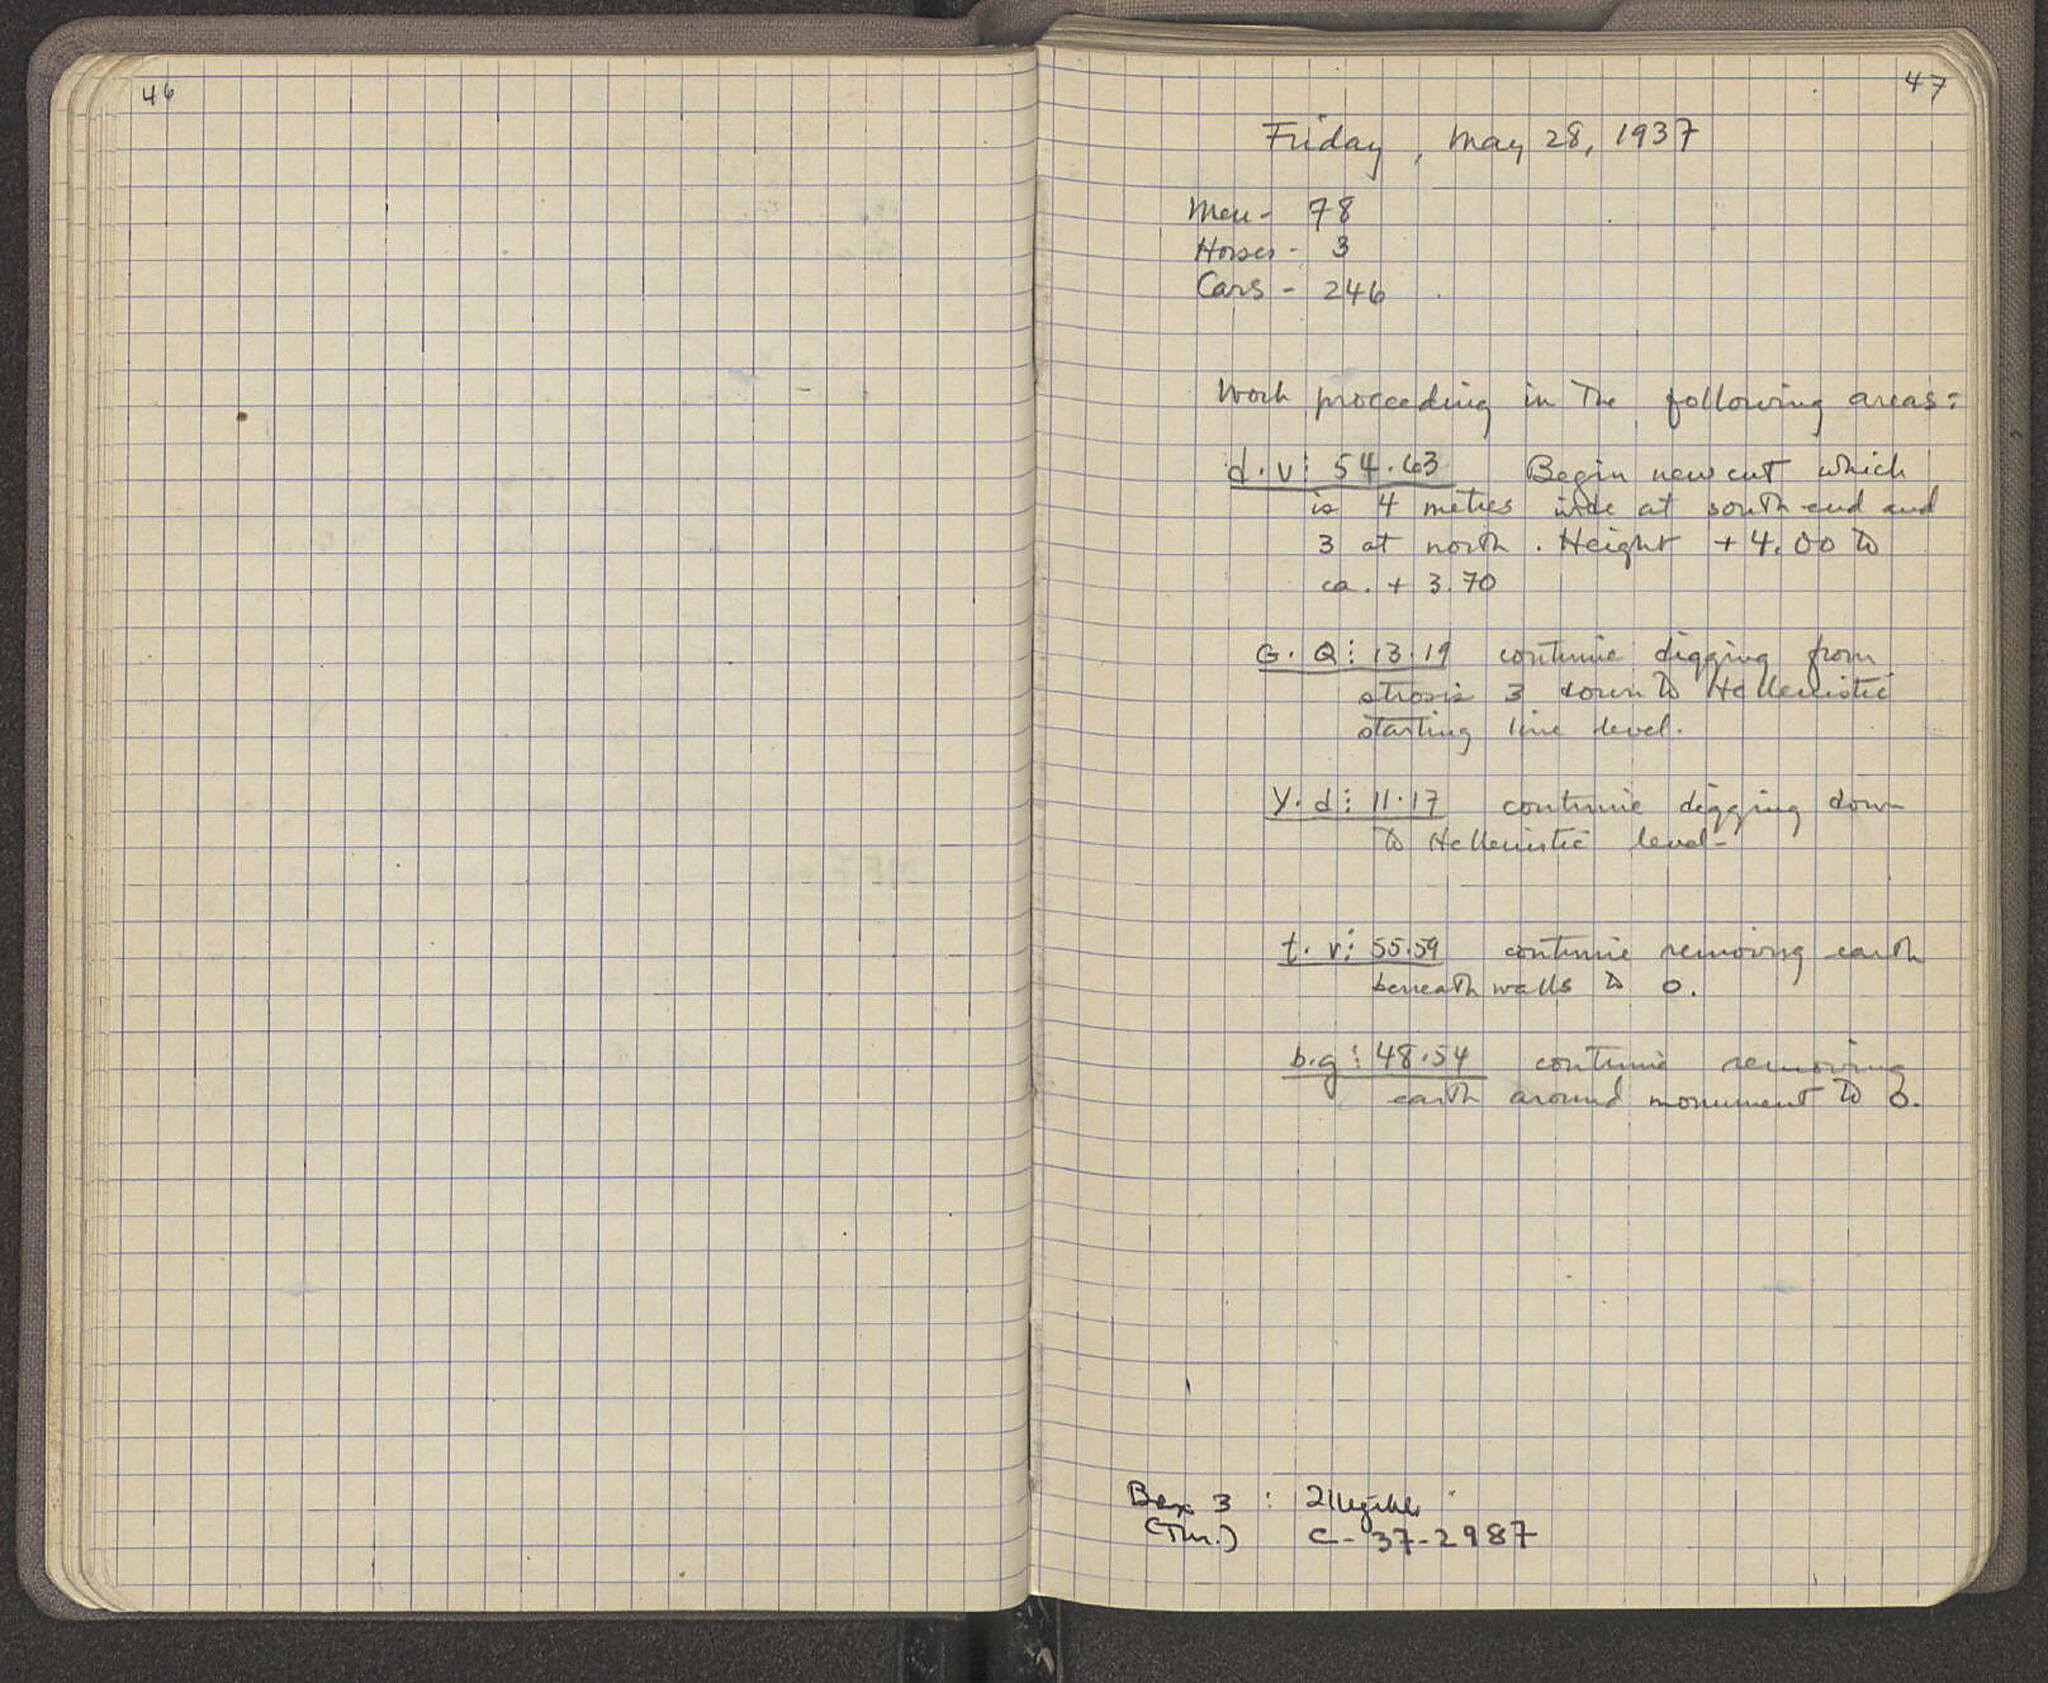 46
47
Friday, May 28, 1937
Men - 78
Horses - 3
Cars - 246
Work proceeding in the following areas:
d.v: 54.63 Begin new cut which
is 4 metres wide at south end and
3 at north. Height + 4.00 to
ca. + 3.70
G.Q: 13.19 continue digging from
strosis 3 down to Hellenistic
starting line level.
Y.d: 11.17 continue digging down
to Hellenistic level-
t.v: 55.59 continue removing earth
beneath walls to 0.
b.g: 48.54 continue removing
earth around monument to 0.
Box 3 : Illegible
(Thr.) C-37-2987